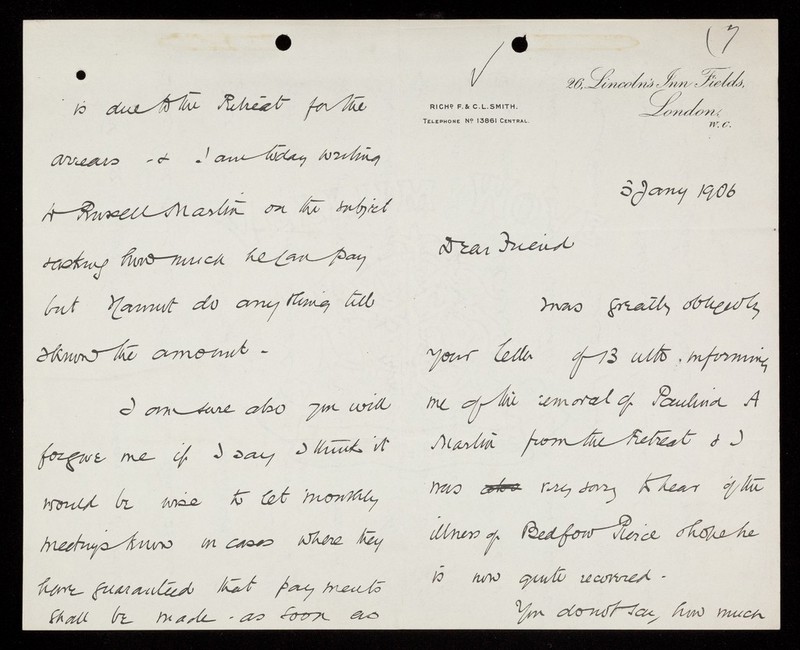 (7
RICHD. F. & C. L. SMITH.
TELEPHONE NO 13861 CENTRAL.
26, Lincoln's Inn Fields,
London,
W.C.
3 Jany 1906
Dear Friend
I was greatly obliged by
your letter of 13 ulto. informing
me of the removal of Paulina A
Martin from the Retreat & I
was also very sorry to hear of the
illness of Bedford Pierce & hope he
is now quite recovered -
You do not say how much
is due to the Retreat for the
arrears - & I am today writing
to Russell Martin on the subject
& asking how much he can pay
but I cannot do anything till
I know the amount -
I am sure also you will
forgive me if I say I think it
would be wise to let monthly
meetings know in cases where they
have guaranteed that payments
shall be made - as soon as